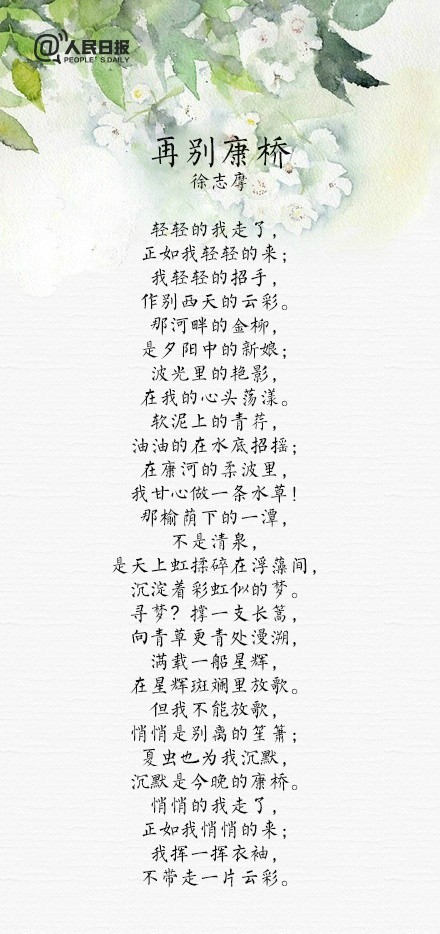 @人民日报
PEOPLE'S DAILY
再别康桥
徐志摩
轻轻的我走了，
正如我轻轻的来；
我轻轻的招手，
作别西天的云彩。
那河畔的金柳，
是夕阳中的新娘；
波光里的艳影，
在我的心头荡漾。
软泥上的青荇，
油油的在水底招摇；
在康河的柔波里，
我甘心做一条水草！
那榆荫下的一潭，
不是清泉，
是天上虹揉碎在浮藻间，
沉淀着彩虹似的梦。
寻梦？撑一支长篙，
向青草更青处漫溯，
满载一船星辉，
在星辉斑斓里放歌。
但我不能放歌，
悄悄是别离的笙箫；
夏虫也为我沉默，
沉默是今晚的康桥。
悄悄的我走了，
正如我悄悄的来；
我挥一挥衣袖，
不带走一片云彩。